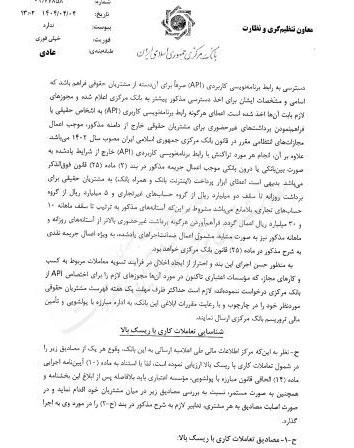 شماره: ۰۱/۶۶۸۵۸
تاریخ: ۱۴۰۴/۰۴/۰۴ ۱۳:۰۲
پیوست: ندارد
فوریت: خیلی فوری
طبقه‌بندی: عادی
معاون تنظیم‌گری و نظارت
بانک مرکزی جمهوری اسلامی ایران
دسترسی به رابط برنامه‌نویسی کاربردی (API) صرفاً برای آن‌دسته از مشتریان حقوقی فراهم باشد که
اسامی و مشخصات ایشان برای اخذ دسترسی مذکور پیشتر به بانک مرکزی اعلام شده و مجوزهای
لازم بابت آن‌ها اخذ شده است. اعطای هرگونه رابط برنامه‌نویسی کاربری (API) به اشخاص حقیقی یا
فراهم‌نمودن برداشت‌های غیرحضوری برای مشتریان حقوقی خارج از دامنه مذکور، موجب اعمال
مجازات‌های انتظامی مقرر در قانون بانک مرکزی جمهوری اسلامی ایران مصوب سال ۱۴۰۲ می‌باشد.
علاوه بر آن، انجام مورد تراکنش با رابط برنامه‌نویسی کاربردی (API) خارج از شرایط یادشده به
صورت بین‌بانکی یا درون بانکی موجب اعمال جریمه مذکور در بند (۲) ماده (۲۵) قانون فوق‌الذکر
می‌باشد. بدیهی است اعطای ابزار پرداخت (اینترنت بانک و همراه بانک) به مشتریان حقیقی برای
برداشت روزانه تا سقف دو میلیارد ریال از گروه حساب‌های غیرتجاری و ۵ میلیارد ریال از گروه
حساب‌های تجاری، بلامانع می‌باشد مشروط بر این‌که آستانه‌های مذکور به ترتیب تا سقف ماهانه ۱۰
و ۳۰ میلیارد ریال اعمال گردد. فراهم‌آوردن هرگونه برداشت غیرحضوری بالاتر از آستانه‌های روزانه و
ماهانه مذکور نیز به صورت مشابه، مشمول اعمال ضمانت‌اجراهای یادشده، به ویژه اعمال جریمه نقدی
به شرح مذکور در ماده (۲۵) قانون بانک مرکزی خواهد بود.
به منظور حسن اجرای این بند و احتراز از ایجاد اخلال در فرآیند تسویه معاملات مربوط به کسب
و کارهای مجاز، که مؤسسات اعتباری تاکنون در مورد آن‌ها مجوزهای لازم را برای اختصاص API از
بانک مرکزی درخواست ننموده‌اند، لازم است حداکثر ظرف مهلت یک هفته فهرست مشتریان حقوقی
موردنظر خود را در چارچوب و با رعایت مقررات ابلاغی این بانک، به اداره مبارزه با پولشویی و تأمین
مالی تروریسم بانک مرکزی ارسال نمایند.
شناسایی تعاملات کاری با ریسک بالا
ج- نظر به این‌که مرکز اطلاعات مالی طی اعلامیه ارسالی به این بانک، وقوع هر یک از مصادیق زیر را
در شمول تعاملات کاری با ریسک بالا ارزیابی نموده است، لذا با استناد به ماده (۱۰) آیین‌نامه اجرایی
ماده (۱۴) الحاقی قانون مبارزه با پولشویی، مؤسسه اعتباری باید بلافاصله پس از ابلاغ این بخشنامه و
همچنین به صورت مستمر، نسبت به بررسی مصادیق زیر در میان مشتریان خود اقدام نماید و در
صورت اصابت مصادیق به هر مشتری، تدابیر لازم به شرح مذکور در بند (ج-۲) را در مورد وی به اجرا
گذارد.
ج-۱- مصادیق تعاملات کاری با ریسک بالا: